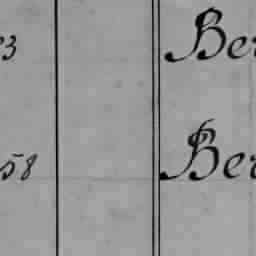 3 Ber
58 Ber